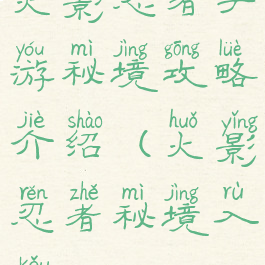 火影忍者手
yóu mì jìng gōng lüè
游秘境攻略
jiè shào huǒ yǐng
介绍(火影
rěn zhě mì jìng rù
忍者秘境入
kǒu